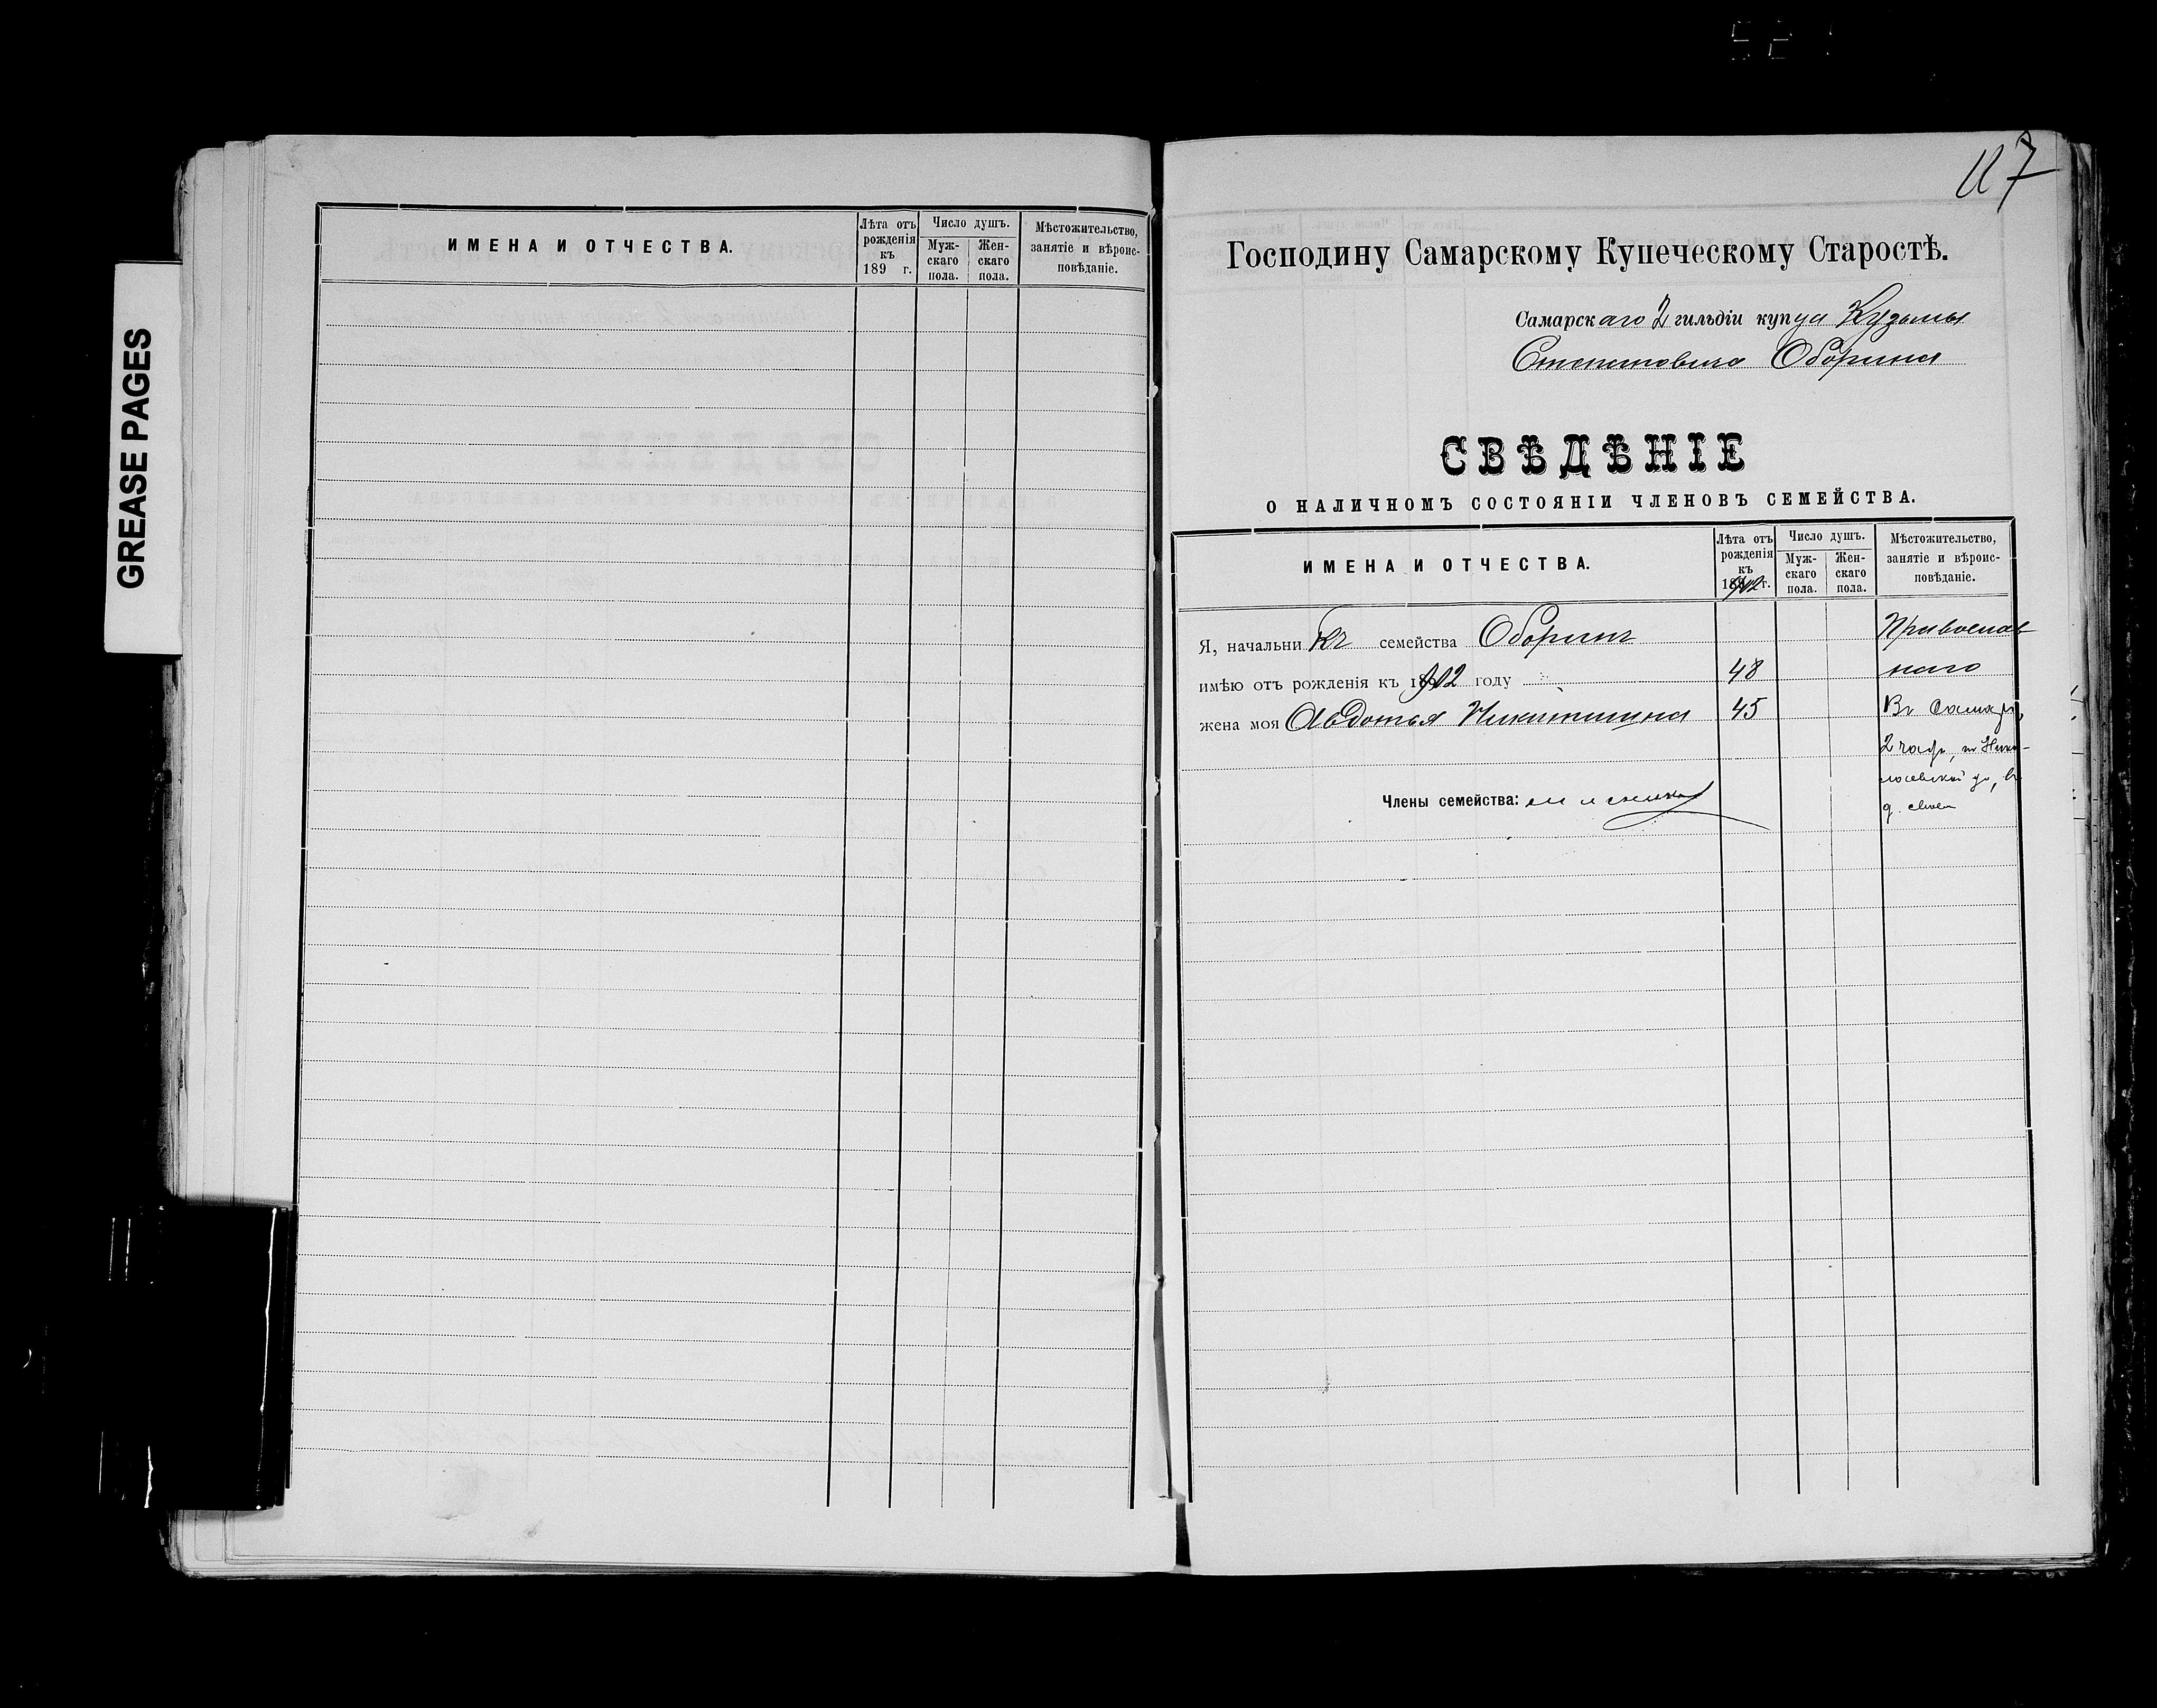 GREASE PAGES
ИМЕНА И ОТЧЕСТВА.
Лѣта отъ рожденія къ 189 г.
Число душъ.
Мужскаго пола.
Женскаго пола.
Мѣстожительство, занятіе и вѣроисповѣданіе.
117
Господину Самарскому Купеческому Старостѣ.
Самарскаго 2 гильдіи купца Кузьмы
Степановича Оборина
СВѢДѢНІЕ
О НАЛИЧНОМЪ СОСТОЯНІИ ЧЛЕНОВЪ СЕМЕЙСТВА.
ИМЕНА И ОТЧЕСТВА.
Лѣта отъ
рожденія
къ
1902 г.
Число душъ.
Муж-
скаго
пола.
Жен-
скаго
пола.
Мѣстожительство,
занятіе и вѣроис-
повѣданіе.
Я, начальникъ семейства Оборинъ Православ
имѣю отъ рожденія къ 1902 году 48 наго
жена моя Авдотья Никитишна 45 Въ Самарѣ,
2 части, по Нико-
лаевской ул, въ
Члены семейства: д. своем